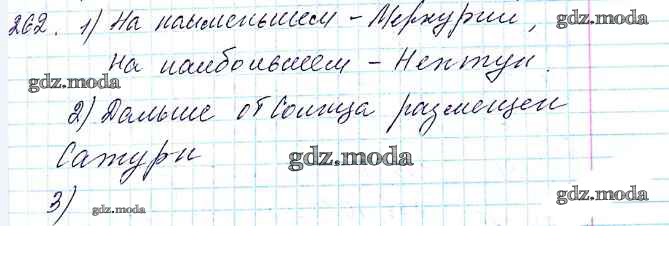 262. 1) На наименьшем - Меркурии,
на наибольшем - Нептун.
gdz.moda
gdz.moda
2) Дальше от Солнца размещен
Сатурн
gdz.moda
gdz.moda
3)
gdz.moda